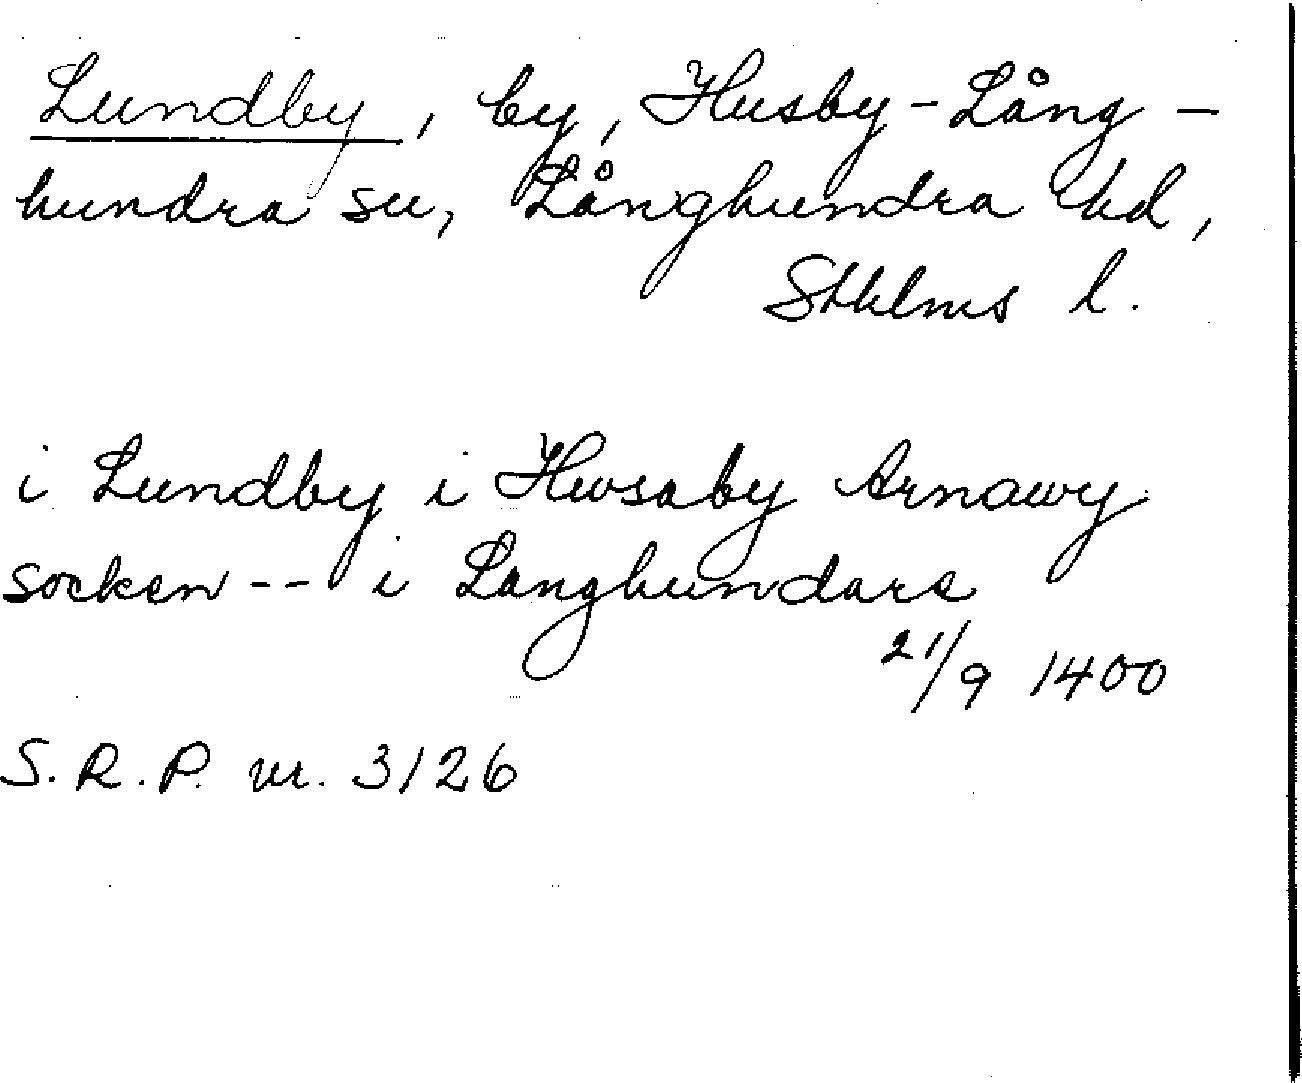 Lundby, by, Husby-Lång-
hundra sn, Långhundra hd,
Sthlms l.
i Lundby i Hwsaby Arnawy
socken -- i Langhundare
21/9 1400
S.R.P. nr. 3126